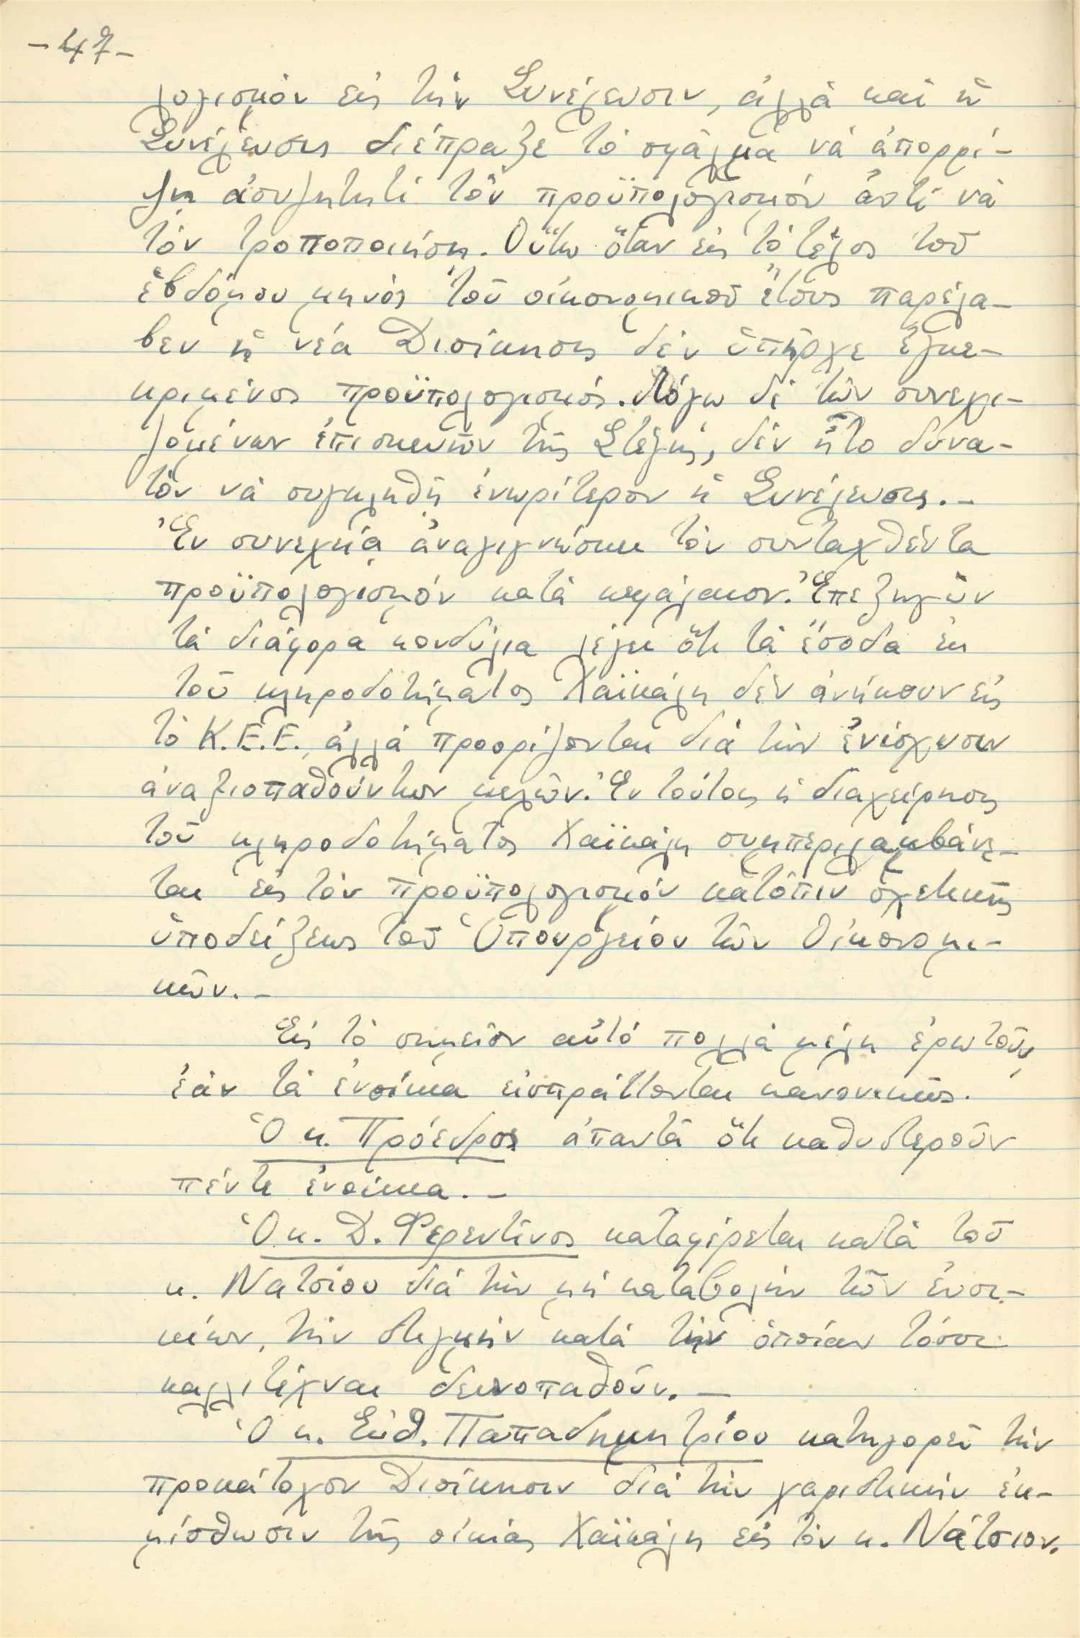 -47-
λογισμόν εἰς τήν Συνέλευσιν, ἀλλά καί ἡ
Συνέλευσις διέπραξε τό σφάλμα νά ἀπορρί-
ψη ἀσυζητητί τόν προϋπολογισμόν ἀντί νά
τόν τροποποιήση. Οὕτω ὅταν εἰς τό τέλος τοῦ
ἑβδόμου μηνός τοῦ οἰκονομικοῦ ἔτους παρέλα-
βεν ἡ νέα Διοίκησις δέν ὑπῆρχε ἐγκε-
κριμένος προϋπολογισμός. Λόγω δέ τῶν συνεχι-
ζομένων ἐπισκευῶν τῆς Στέγης, δέν ἦτο δυνα-
τόν νά συγκληθῆ ἐνωρίτερον ἡ Συνέλευσις.-
Ἐν συνεχείᾳ ἀναγιγνώσκει τόν συνταχθέντα
προϋπολογισμόν κατά κεφάλαιον. Ἐπεξηγῶν
τά διάφορα κονδύλια λέγει ὅτι τά ἔσοδα ἐκ
τοῦ κληροδοτήματος Χαϊκάλη δέν ἀνήκουν εἰς
τό Κ.Ε.Ε. ἀλλά προορίζονται διά τήν ἐνίσχυσιν
ἀναξιοπαθούντων μελῶν. Ἐν τούτοις ἡ διαχείρησις
τοῦ κληροδοτήματος Χαϊκάλη συμπεριλαμβάνε-
ται εἰς τόν προϋπολογισμόν κατόπιν σχετικῆς
ὑποδείξεως τοῦ Ὑπουργείου τῶν Οἰκονομι-
κῶν.-
Εἰς τό σημεῖον αὐτό πολλά μέλη ἐρωτοῦν,
ἐάν τά ἐνοίκια εἰσπράττονται κανονικῶς.
Ὁ κ. Πρόεδρος ἀπαντᾶ ὅτι καθυστεροῦν
πέντε ἐνοίκια.-
Ὁ κ. Δ. Φερεντῖνος καταφέρεται κατά τοῦ
κ. Νάτσιου διά τήν μή καταβολήν τῶν ἐνοι-
κίων, τήν στιγμήν κατά τήν ὁποίαν τόσοι
καλλιτέχναι δεινοπαθοῦν.-
Ὁ κ. Εὐθ. Παπαδημητρίου κατηγορεῖ τήν
προκάτοχον Διοίκησιν διά τήν χαριστικήν ἐκ-
μίσθωσιν τῆς οἰκίας Χαϊκάλη εἰς τόν κ. Νάτσιον.